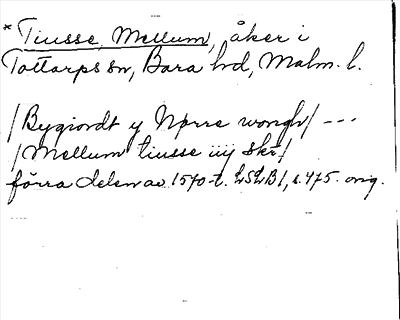 * Tiusse, Mellum, åker i
Tottarps sn, Bara hd, Malm. l.
/Bygiordt y Nørre wongh/ ---
/Mellum tiusse iiij skr/
förra delen av 1570-t. LSLB1, s. 475. orig.